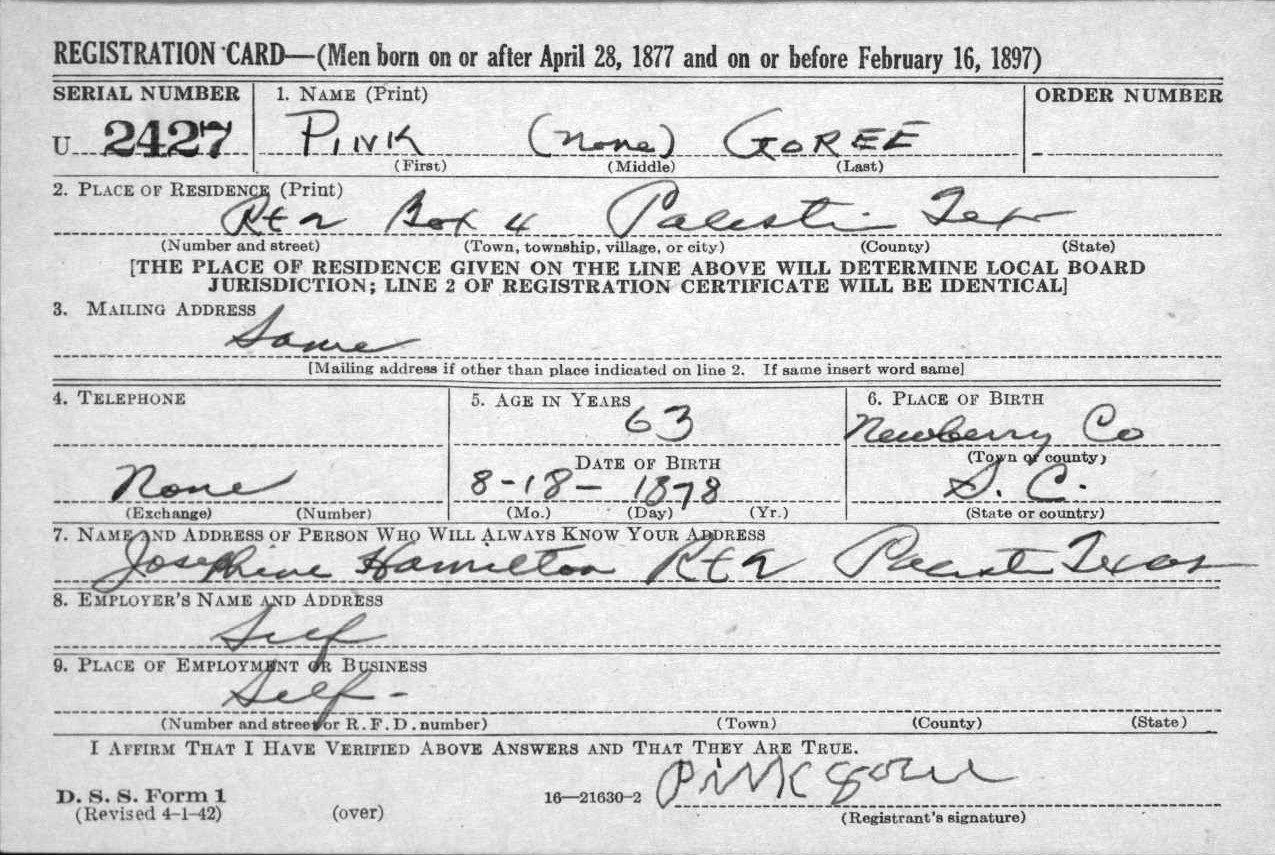 REGISTRATION CARD—(Men born on or after April 28, 1877 and on or before February 16, 1897)
SERIAL NUMBER 1. NAME (Print) ORDER NUMBER
U 2427 PINK (None) GOREE
(First) (Middle) (Last)
2. PLACE OF RESIDENCE (Print)
Rt 2 Box 4 Palestine Tex
(Number and street) (Town, township, village, or city) (County) (State)
[THE PLACE OF RESIDENCE GIVEN ON THE LINE ABOVE WILL DETERMINE LOCAL BOARD
JURISDICTION; LINE 2 OF REGISTRATION CERTIFICATE WILL BE IDENTICAL]
3. MAILING ADDRESS
Same
[Mailing address if other than place indicated on line 2. If same insert word same]
4. TELEPHONE 5. AGE IN YEARS 6. PLACE OF BIRTH
63 Newberry Co
DATE OF BIRTH (Town or county)
None 8-18-1878 S. C.
(Exchange) (Number) (Mo.) (Day) (Yr.) (State or country)
7. NAME AND ADDRESS OF PERSON WHO WILL ALWAYS KNOW YOUR ADDRESS
Josephine Hamilton Rt 2 Palestine Texas
8. EMPLOYER'S NAME AND ADDRESS
Self
9. PLACE OF EMPLOYMENT OR BUSINESS
Self -
(Number and street or R. F. D. number) (Town) (County) (State)
I AFFIRM THAT I HAVE VERIFIED ABOVE ANSWERS AND THAT THEY ARE TRUE.
Pink goree
D. S. S. Form 1 16—21630-2
(Revised 4-1-42) (over) (Registrant's signature)